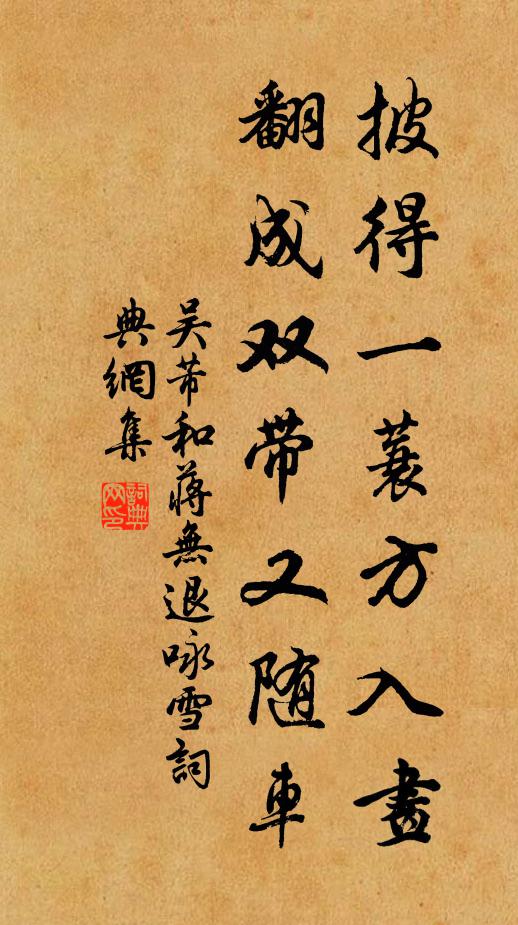 披得一蓑方入畫
翻成双带又随車
吴芾和蒋無退咏雪詞
典網集
詞典
网印